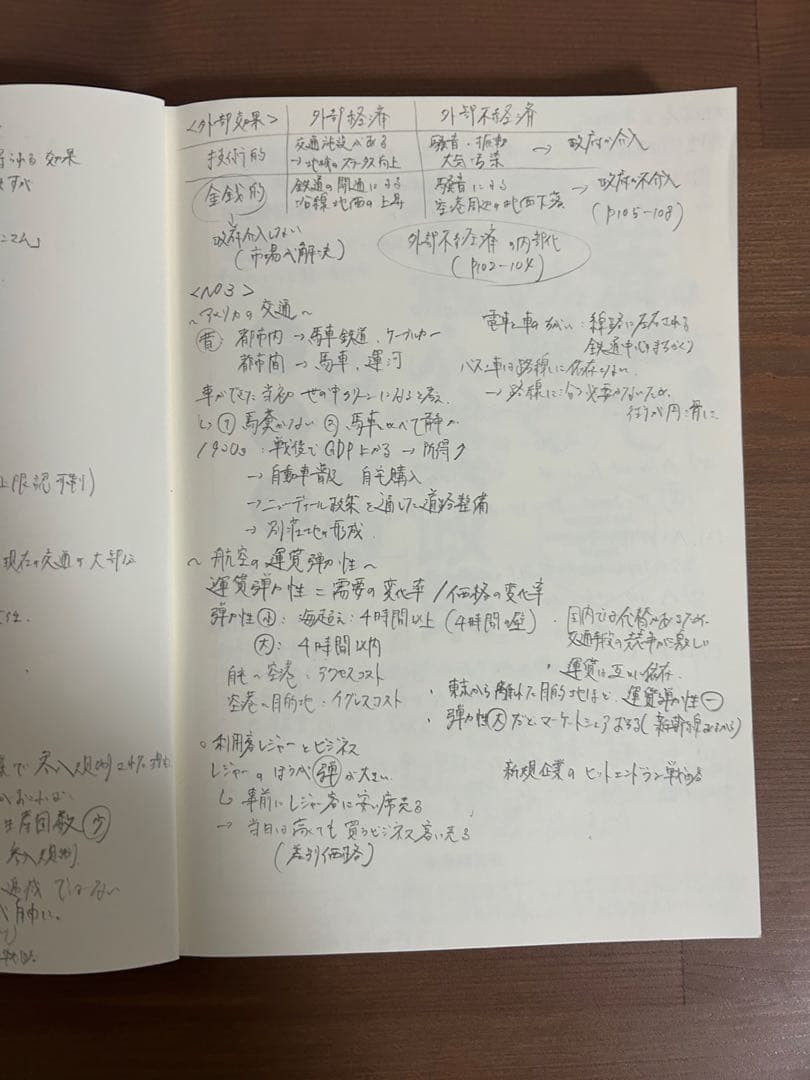 る効果
すが
上限認可制)
現在の交通の大部は
で参入規制
生産回数 少
参入規制
達成ではない
自由に。
<外部効果> 外部経済 外部不経済
技術的 交通施設がある →地域のステータス向上 騒音・振動 大気汚染 → 政府の介入
金銭的 鉄道の開通による 沿線地価の上昇 騒音による 空港周辺の地価下落 → 政府の不介入
(p105-108)
政府介入しない
(市場で解決)
外部不経済の内部化
(p102-104)
<No3>
~アメリカの交通~
昔: 都市内→馬車鉄道、ケーブルカー
都市間→馬車、運河
電車と車のちがい:線路に左右される
鉄道中心のまちづくり
バス・車は路線に依存しない
→路線に沿う必要がないため
車ができた当初 世の中クリーンになると
↳ ① 馬糞がない ② 馬車に比べて静か
1920s:戦後でGDP上がる→所得↗
→自動車普及 自宅購入
→ニューディール政策を通した道路整備
→ の形成
~航空の運賃弾力性~
運賃弾力性=需要の変化率/価格の変化率
弾力性 小:海超え:4時間以上(4時間の壁)
大:4時間以内
・国内では代替があるため、
交通手段の競争が激しい
・運賃は互いに依存
自宅の空港:アクセスコスト
空港の目的地:イグレスコスト
・東京から離れた目的地ほど、運賃弾力性 ー
・弾力性 大 だと、マーケットシェアおちる(新幹線あるから)
○利用者レジャーとビジネス
レジャーのほうが 弾 が大きい
↳ 事前にレジャー客に安い席売る
→ 当日は高くても買うビジネス高い売る
(差別価格)
新規企業のヒットエンドラン戦略